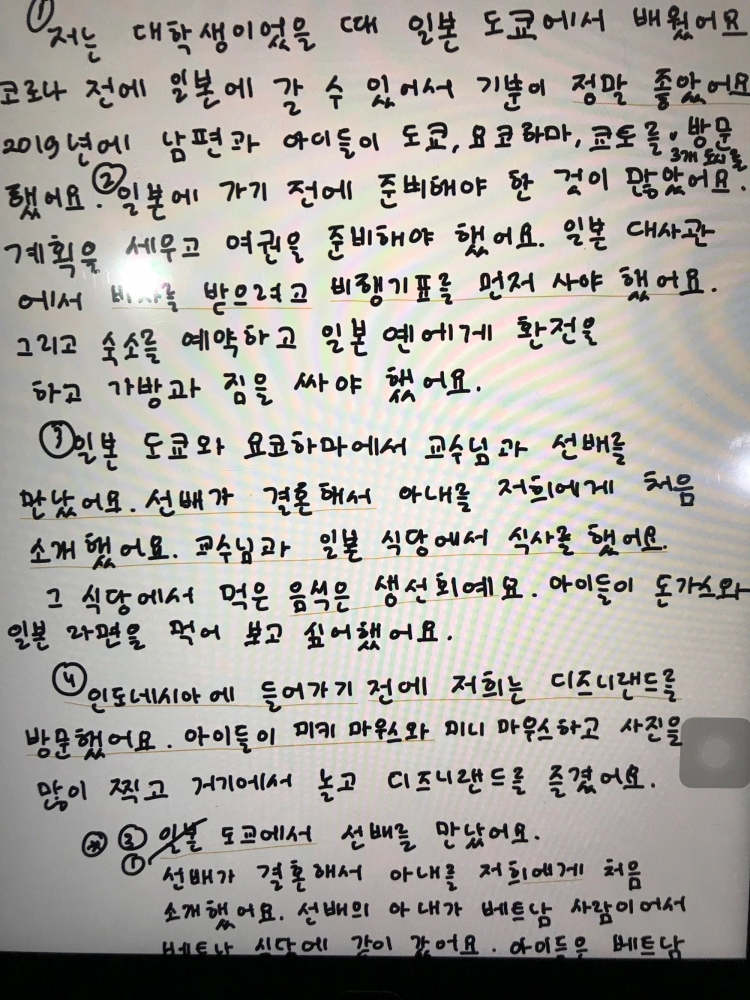 ① 저는 대학생이었을 때 일본 도쿄에서 배웠어요
코로나 전에 일본에 갈 수 있어서 기분이 정말 좋았어요
2019년에 남편과 아이들이 도쿄, 요코하마, 쿄토를 방문
3개 도시를
했어요. ② 일본에 가기 전에 준비해야 한 것이 많았어요.
계획을 세우고 여권을 준비해야 했어요. 일본 대사관
에서 비자를 받으려고 비행기표를 먼저 사야 했어요.
그리고 숙소를 예약하고 일본 옌에게 환전을
하고 가방과 짐을 싸야 했어요.
③ 일본 도쿄와 요코하마에서 교수님과 선배를
만났어요. 선배가 결혼해서 아내를 저희에게 처음
소개했어요. 교수님과 일본 식당에서 식사를 했어요.
그 식당에서 먹은 음식은 생선회예요. 아이들이 돈가스와
일본 라면을 먹어 보고 싶어했어요.
④ 인도네시아에 들어가기 전에 저희는 디즈니랜드를
방문했어요. 아이들이 미키 마우스와 미니 마우스하고 사진을
많이 찍고 거기에서 놀고 디즈니랜드를 즐겼어요.
③ 일본 도쿄에서 선배를 만났어요.
① 선배가 결혼해서 아내를 저희에게 처음
소개했어요. 선배의 아내가 베트남 사람이어서
베트남 식당에 같이 갔어요. 아이들은 베트남